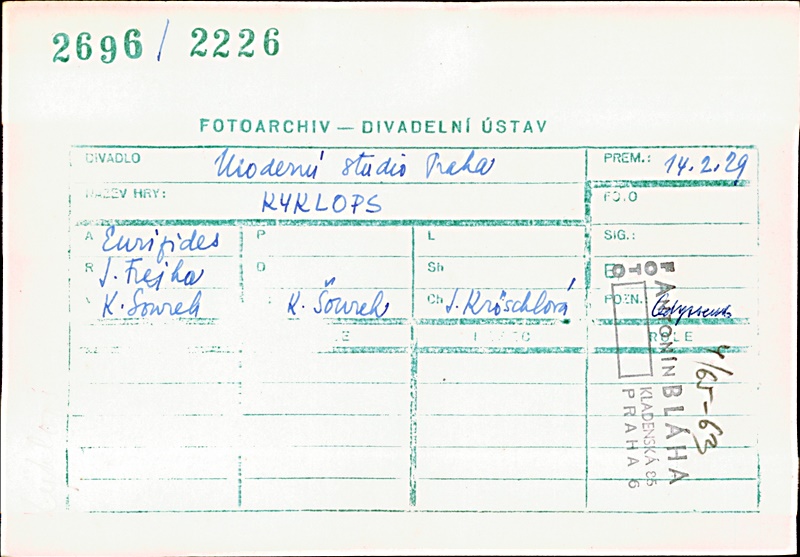 2696/2226
FOTOARCHIV — DIVADELNÍ ÚSTAV
DIVADLO Moderní studio Praha PREM.: 14.2.29
NÁZEV HRY: KYKLOPS FOTO
A Euripides P L SIG.:
R J. Frejka O Sh
K. Šourek K. Šourek Ch J. Kröschlová POZN. Odysseus
ROLE
FOTO
ANTONÍN BLÁHA
KLADENSKÁ 85
PRAHA 6
4/65-63